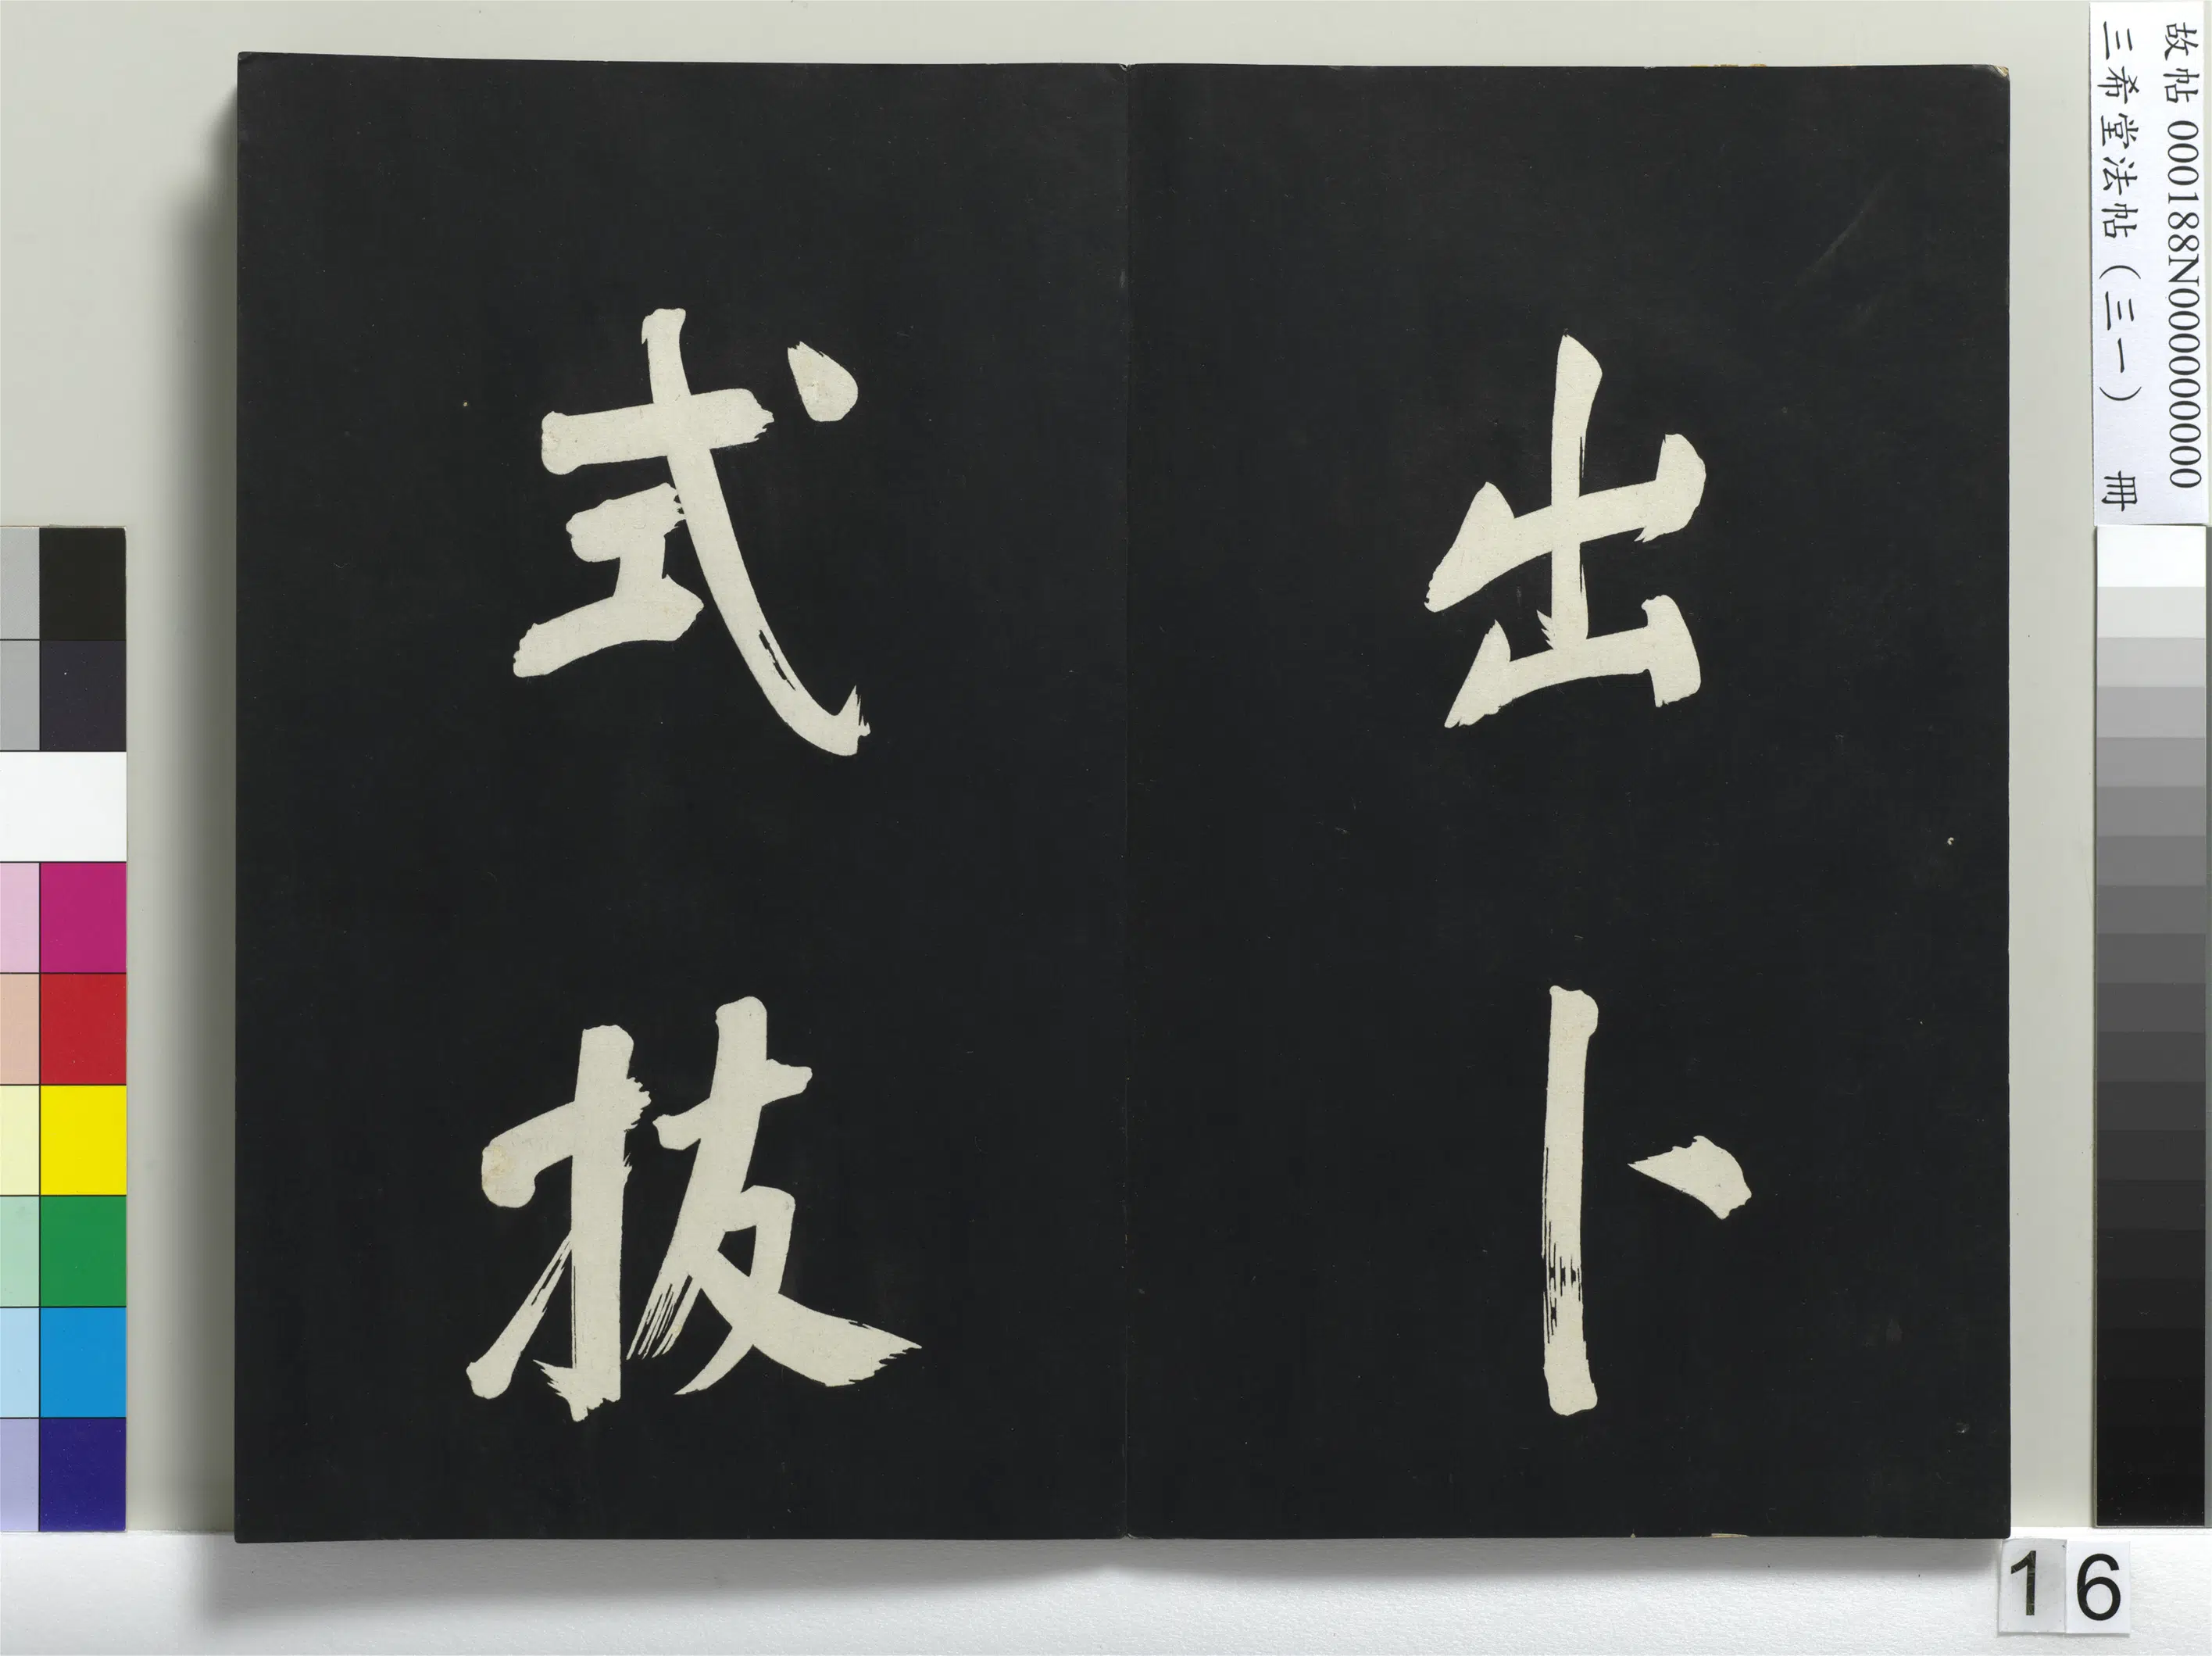 出卜
式拔
故帖 000188N000000000
三希堂法帖（三一） 冊
16